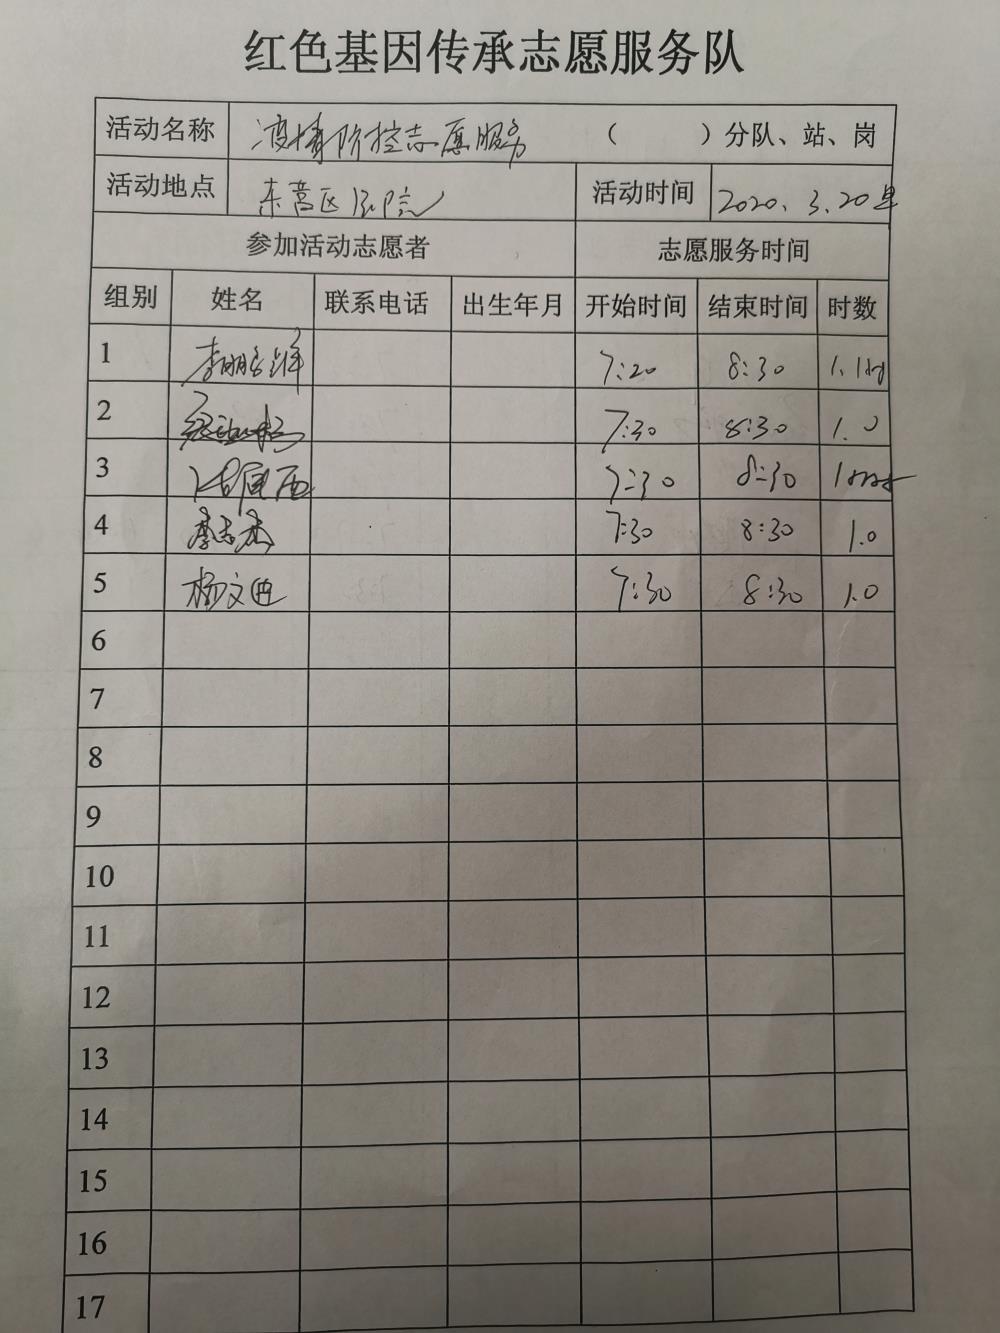 红色基因传承志愿服务队
活动名称 疫情防控志愿服务 （ ）分队、站、岗
活动地点 东营区 活动时间 2020.3.20
参加活动志愿者 志愿服务时间
组别 姓名 联系电话 出生年月 开始时间 结束时间 时数
1 7:20 8:30
2 7:30 8:30 1.0
3 7:30 8:30
4 李志杰 7:30 8:30 1.0
5 杨文迪 7:30 8:30 1.0
6
7
8
9
10
11
12
13
14
15
16
17